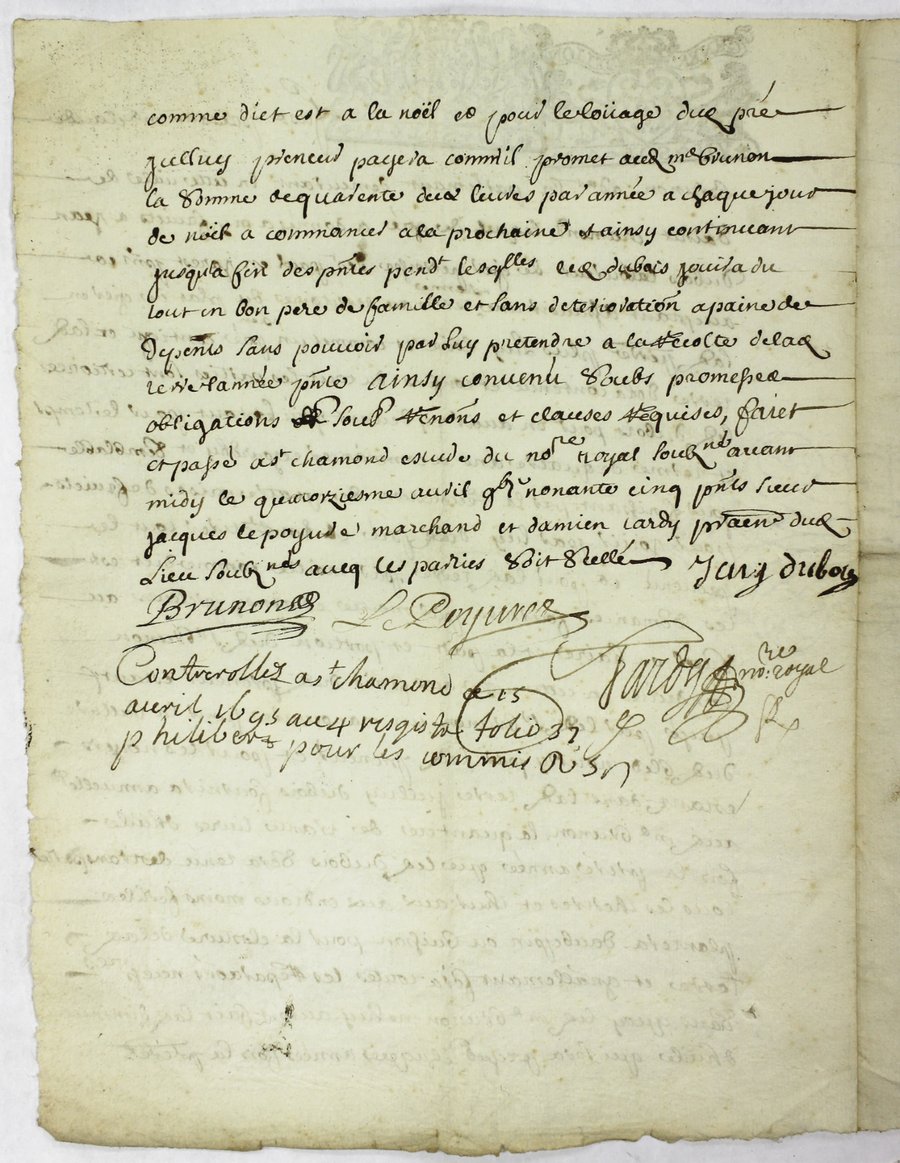 comme dict est a la noël et pour le loüage dud pré
preneur payera comme il promet aud me brunon
la somme de quarente deux liures par année a chaque jour
de noël a commancer a la prochaine et ainsy continuant
jusqu'a fin des pntes pendt lesqlles led dubois jouira du
tout en bon pere de famille et sans deterioration a paine de
depents sans pouvoir par luy pretendre a la recolte de lad
terre l'année pnte ainsy convenu soubs promesse
obligations soubs renons et clauses requises, faict
et passé a st chamond estude du nore royal soubzné avant
midy le quatorziesme avril nonante cinq pnts sieur
jacques lepoyure marchand et damien tardy dud
lieu soubznés avecq les parties soit sellé Jan dubois
Brunon Le Poyure
Tardy nore royal
Controllez a st chamond le 15
avril 1695 au 4 regist folio 37
philibert pour les commis